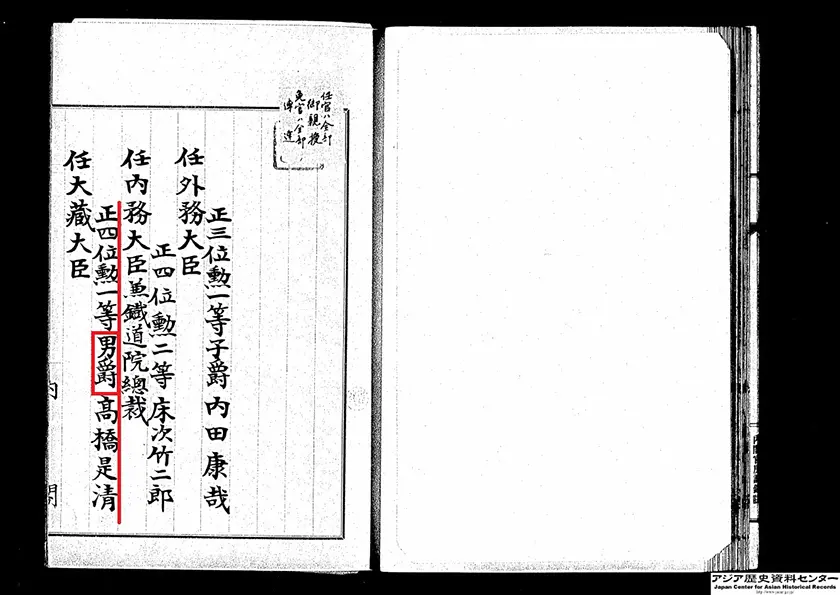 任官ハ全部
御親授
免官ハ全部
正三位勲一等子爵内田康哉
任外務大臣
正四位勲二等床次竹二郎
任内務大臣兼鐵道院總裁
正四位勲一等男爵髙橋是清
任大藏大臣
内
閣
アジア歴史資料センター
Japan Center for Asian Historical Records
http://www.jacar.go.jp/